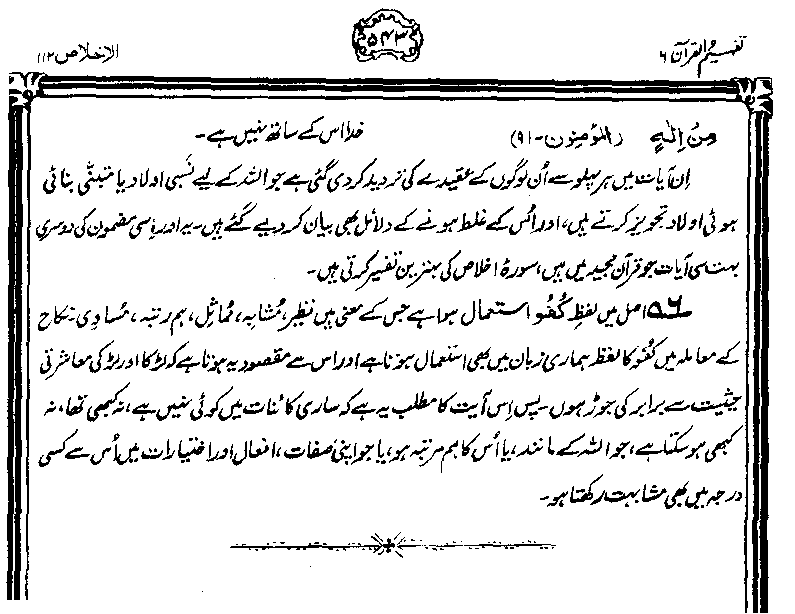 تفہیم القرآن ۶
۵۴۳
الاخلاص ۱۱۲
مِنْ اِلٰہٍ (المؤمنون-۹۱) خدا اس کے ساتھ نہیں ہے۔
اِن آیات میں ہر پہلو سے اُن لوگوں کے عقیدے کی تردید کر دی گئی ہے جو اللہ کے لیے نَسَبی اولاد یا متبنّٰی بنائی
ہوئی اولاد تجویز کرتے ہیں، اور اُس کے غلط ہونے کے دلائل بھی بیان کر دیے گئے ہیں۔ یہ اور اِسی مضمون کی دوسری
بہت سی آیات جو قرآن مجید میں ہیں، سورۂ اخلاص کی بہترین تفسیر کرتی ہیں۔
۶ اصل میں لفظِ کُفُو استعمال ہوا ہے جس کے معنی ہیں نظیر، مُشابہ، مُماثِل، ہم رتبہ، مُساوی۔ نکاح
کے معاملہ میں کُفُو کا لفظ ہماری زبان میں بھی استعمال ہوتا ہے اور اس سے مقصود یہ ہوتا ہے کہ لڑکا اور لڑکی معاشرتی
حیثیت سے برابر کی جوڑ ہوں۔ پس اِس آیت کا مطلب یہ ہے کہ ساری کائنات میں کوئی نہیں ہے، نہ کبھی تھا، نہ
کبھی ہو سکتا ہے، جو اللہ کے مانند، یا اُس کا ہم مرتبہ ہو، یا جو اپنی صفات، افعال اور اختیارات میں اُس سے کسی
درجہ میں بھی مشابہت رکھتا ہو۔